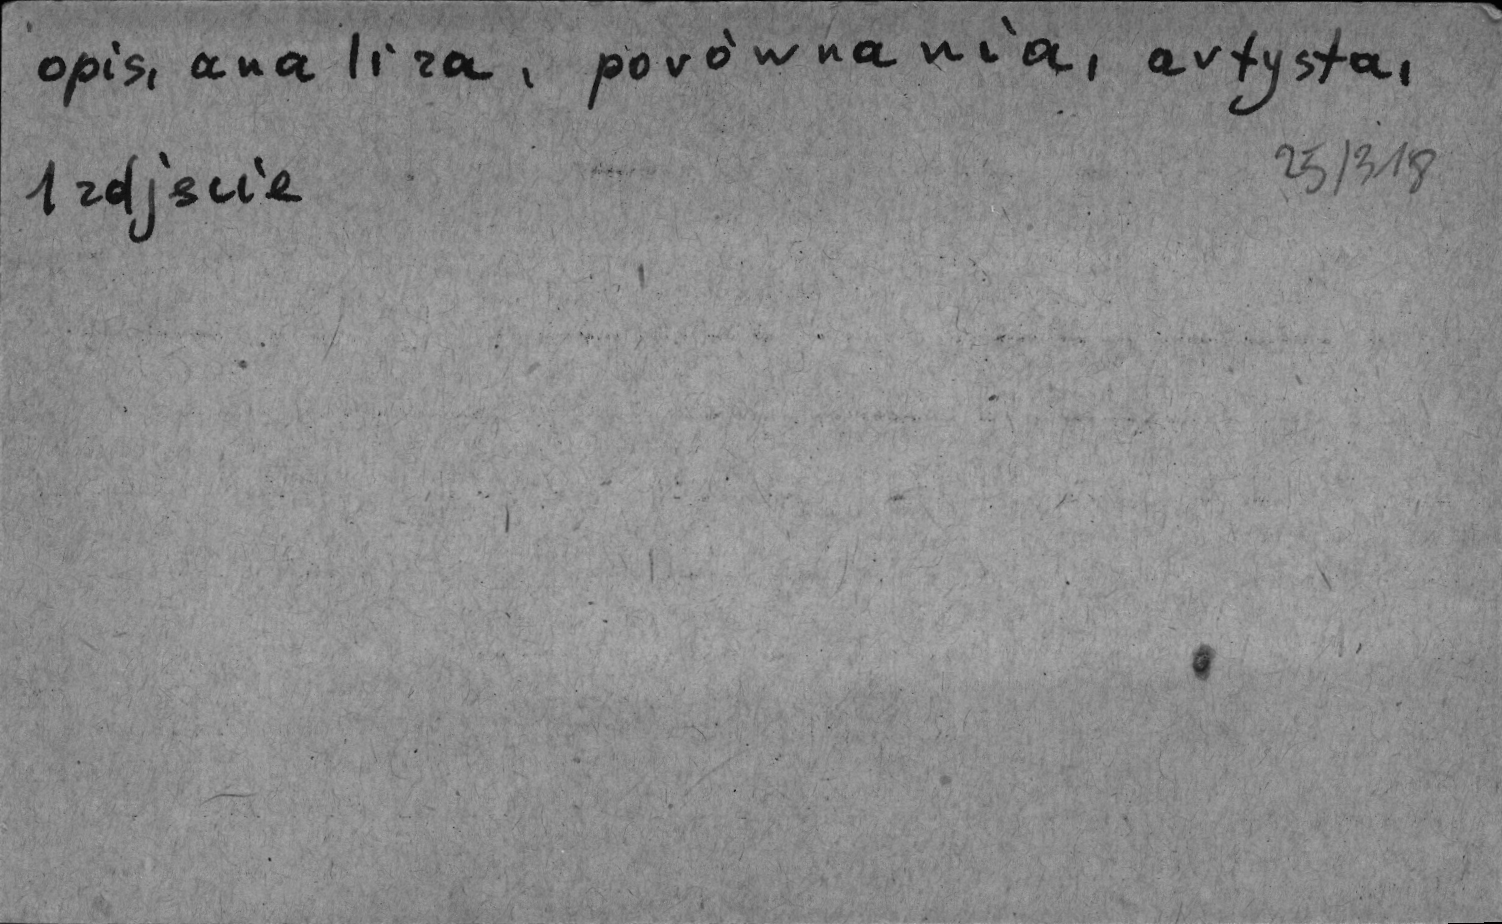 opis, analiza, porównania, artysta,
1 zdjęcie
25/318